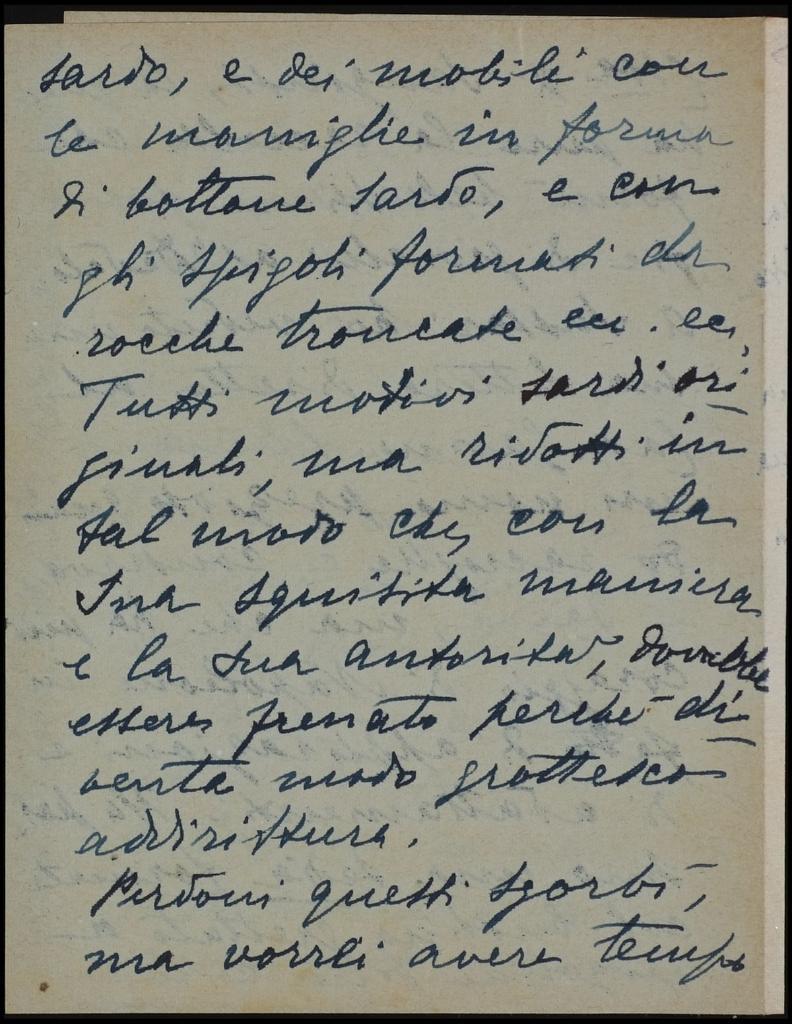 sardo, e dei mobili con
le maniglie in forma
di bottone sardo, e con
gli spigoli formati da
rocche troncate ecc. ecc.
Tutti motivi sardi ori-
ginali, ma ridotti in
tal modo che, con la
Sua squisita maniera
e la sua autorità, dovrebbe
essere frenato perché di-
venta modo grottesco
addirittura.
Perdoni questi sgorbi,
ma vorrei avere tempo